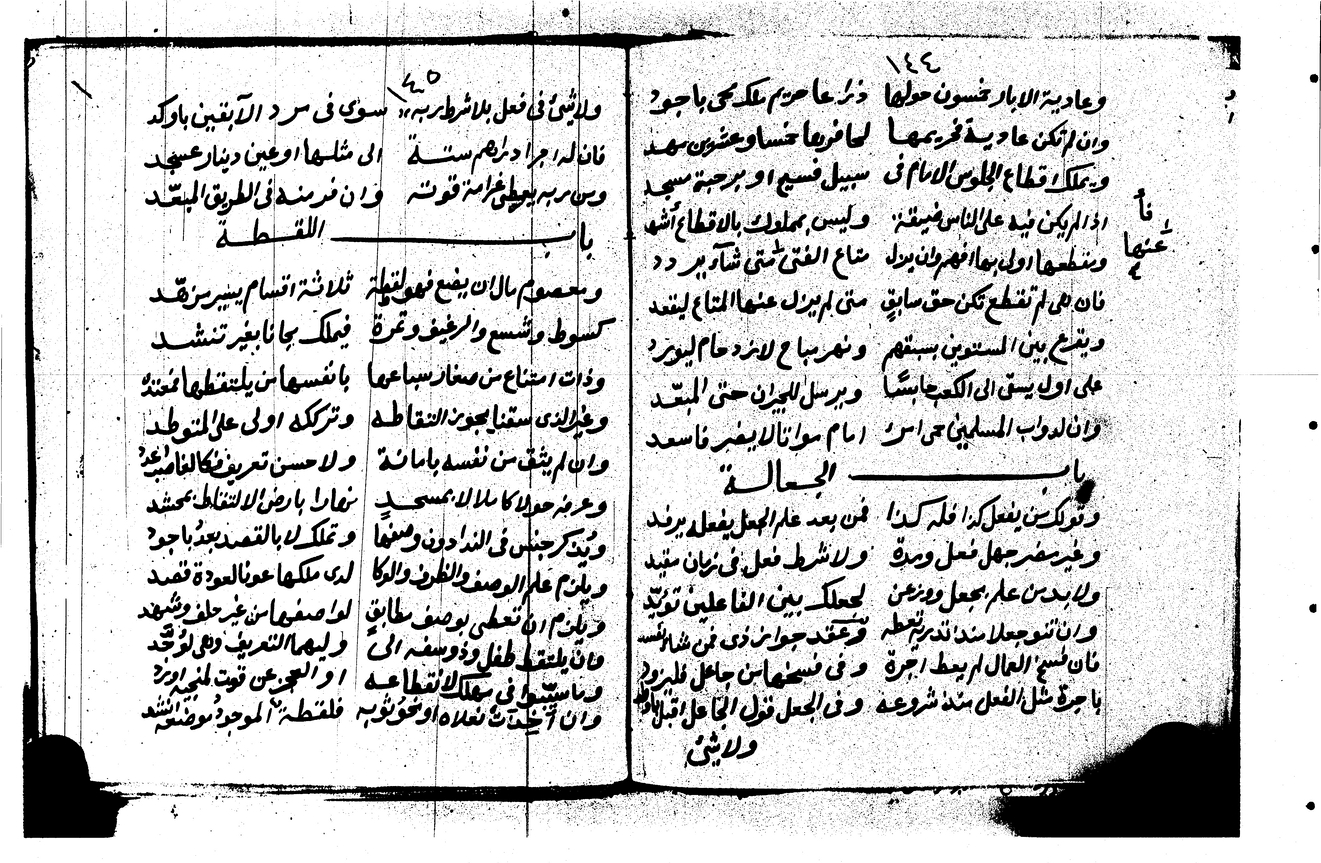 ١٤٤
وعادية الابار خمسون حولها ذراعا حريم ملك محي باجود
وان لم تكن عادية فحريمها لحافرها خمسا وعشرين
ويملك اقطاع الجلوس الامام فى سبيل فسيح او برحبة مسجد
اذا لم يكن فيه على الناس ضيقة وليس بمملوك بالاقطاع
ومقطعها اولى بها افهم وان يزل متاع الفتى متى شاء يردد
فا
عنها
٤
فان هى لم تقطع تكن حق سابق متى لم يزل عنها المتاع ليقعد
ويقرع بين المستوين بسبقهم ونهر مباح لازدحام ليورد
على اول يسقى الى الكعب حابسا ويرسل للجيران حتى المبعّد
وان لدواب المسلمين حمى امرئ امام مواتا لا يضر فاسعد
باب الجعالة
وقولك من يفعل كذا فله كذا فمن بعد علم الجعل يفعله يرفد
وغير مضر جهل فعل ومدة ولا شرط فعل فى زمان مقيد
ولا بد من علم بجعل ووزعن لجعلك بين الفاعلين تؤيّد
وان تنو جعلا منذ لم تدر تعطه وعقد جوائز ذى فمن شاء
فان فسخ العمال لم يعط اجرة وفى فسخها من جاعل فليزود
باجرة مثل الفعل منذ شروعه وفى الجعل قول الجاعل اقبل
ولا شئ
١٤٥
ولا شئ فى فعل بلا شرط ربه سوى فى مرد الآبقين باوكد
فان له اجرا دراهم ستة الى مثلها او عين دينار عسجد
ومن ربه يعطى غرامة قوته وان فر منه فى الطريق المبعّد
باب اللقطة
ومعصوم مال ان يضع فهو لقطة ثلاثة اقسام يميز من هدّ
كسوط وشسع والرغيف وتمرة فيملك مجانا بغير تنشد
وذات امتناع من صغار سباعها بانفسها من يلتقطها
وغير الذى سقنا يجوز التقاطه وتركه اولى على المتوطد
وان لم يثق من نفسه بامانة ولا حسن تعريف فكالغاصب
وعرف حولا كاملا لا بمسجد نهارا بارض الالتقاط بمحشد
ويذكر جنس فى الندا دون وصفها وتملك لا بالقصد بعد باجود
ويلزم علم الوصف والظرف والوكا لدى ملكها عونا لعودة قصد
ويلزم ان تعطى بوصف مطابق لواصفها من غير حلف وشهد
فان يلتقط طفل وذو سفه الى وليهما التعريف
وما سيّبوا فى مهلك لانقطاعه او العجز عن قوت
وان أخذت نعلاه او نحو ثوبه فلقطة الموجود موضعه